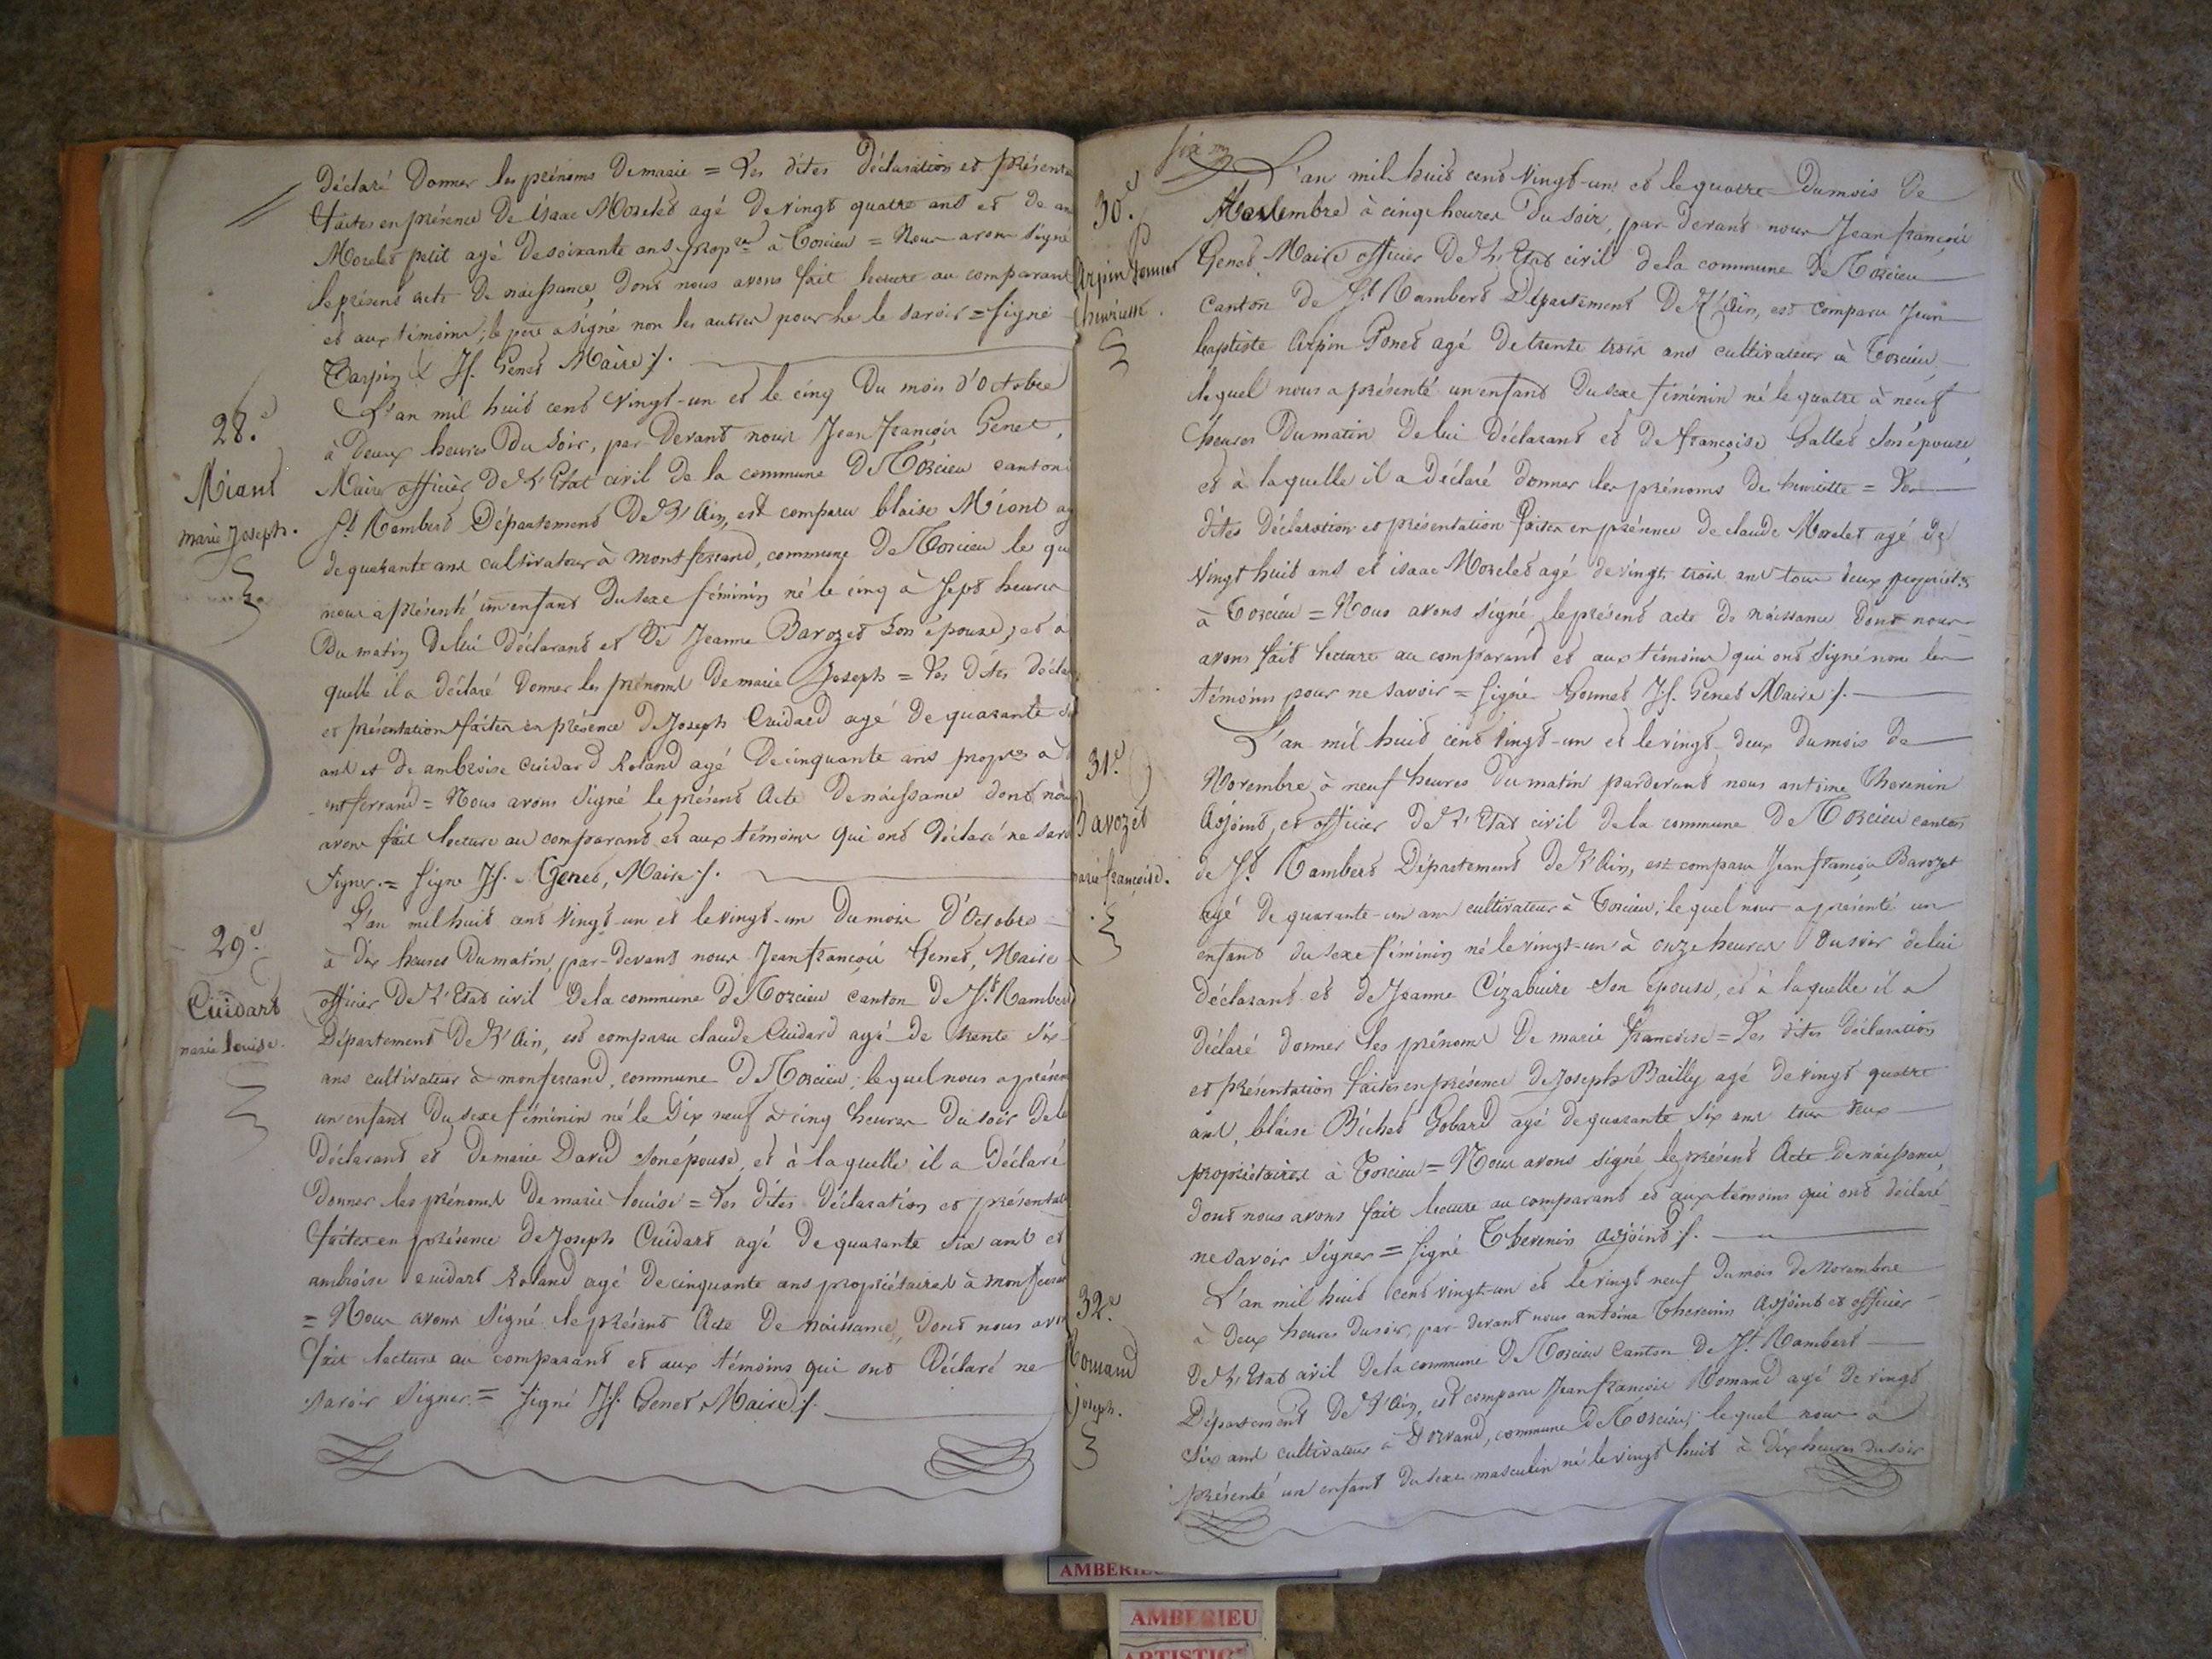 Déclaré donner les prénoms de marie = Les dites Déclaration et présenta
faites en présence de isaac Morelet agé de vingt quatre ans et de
Morelet petit agé de soixante ans prop.re à Torcieu = Nous avons signé
le présent acte de naissance, dont nous avons fait lecture au comparant
et aux témoins; le père a signé non les autres pour ne le savoir = signé
Tarpin & Jf. Genet Maire /.
28.e
Miant
marie Joseph.
L'an mil huit cent vingt-un et le cinq du mois d'Octobre
à deux heures du soir, par-devant nous Jean françois Genet,
Maire officier de l'Etat civil de la commune de Torcieu canton
St. Rambert Département de l'Ain, est comparu blaise Miant ag
de quarante ans cultivateur à montferrand, commune de Torcieu le qu
nous a présenté un enfant du sexe féminin né le cinq à sept heures
du matin de lui déclarant et de Jeanne Barozet son épouse; et à
quelle il a déclaré donner les prénoms de marie Joseph = Les dites décla
et présentation faites en présence de Joseph Cuidard agé de quarante
ans et de ambroise Cuidard Roland agé de cinquante ans prop.res à
ontferrand = Nous avons signé le présent Acte de naissance dont nous
avons fait lecture au comparant et aux témoins qui ont déclaré ne savo
signer. = signé Jf. Genet, Maire /.
29.e
Cuidart
marie louise.
L'an mil huit cent vingt-un et le vingt-un du mois d'Octobre
à dix heures du matin, par-devant nous Jean françois Genet, Maire
officier de l'Etat civil de la commune de Torcieu canton de St. Rambert
Département de l'Ain, est comparu claude Cuidard agé de trente six
ans cultivateur à monferrand, commune de Torcieu; lequel nous a présen
un enfant du sexe féminin né le dix neuf à cinq heures du soir de lui
déclarant et de marie David son épouse, et à laquelle il a déclaré
donner les prénoms de marie louise = Les dites déclaration et présentati
faites en présence de Joseph Cuidart agé de quarante six ans et
ambroise cuidart Roland agé de cinquante ans propriétaires à montferrand
= Nous avons signé le présent Acte de naissance, dont nous avons
fait lecture au comparant et aux témoins qui ont déclaré ne
savoir signer = signé Jf. Genet Maire /.
30.e
Arpin Gonnet
henriette.
L'an mil huit cent vingt-un et le quatre du mois de
Novembre à cinq heures du soir, par devant nous Jean françois
Genet, Maire officier de l'Etat civil de la commune de Torcieu
canton de St. Rambert Département de l'Ain, est comparu Jean
baptiste Arpin Gonet agé de trente trois ans cultivateur à Torcieu,
lequel nous a présenté un enfant du sexe féminin né le quatre à neuf
heures du matin de lui déclarant et de françoise Gallet son épouse,
et à laquelle il a déclaré donner les prénoms de henriette = Les
dites déclaration et présentation faites en présence de claude Morelet agé de
vingt huit ans et isaac Morelet agé de vingt trois ans tous deux propriétes
à Torcieu = Nous avons signé le présent acte de naissance dont nous
avons fait lecture au comparant et aux témoins qui ont signé non les
témoins pour ne savoir = signé Gonnet Jf. Genet Maire /.
31.e
Barozet
marie françoise.
L'an mil huit cent vingt-un et le vingt-deux du mois de
Novembre à neuf heures du matin pardevant nous antoine Thevenin
Adjoint, et officier de l'Etat civil de la commune de Torcieu canton
de St. Rambert Département de l'Ain, est comparu Jean françois Barozet
agé de quarante-un ans cultivateur à Torcieu; lequel nous a présenté un
enfant du sexe féminin né le vingt-un à onze heures du soir de lui
déclarant et de Jeanne Cizabuire son épouse, et à laquelle il a
déclaré donner les prénoms de marie françoise = Les dites déclaration
et présentation faites en présence de Joseph Bailly agé de vingt quatre
ans, blaise Bichet Gobard agé de quarante six ans tous deux
propriétaires à Torcieu = Nous avons signé le présent Acte de naissance,
dont nous avons fait lecture au comparant et aux témoins qui ont déclaré
ne savoir signer = signé Thevenin adjoint /.
32.e
Romand
Joseph.
L'an mil huit cent vingt-un et le vingt neuf du mois de Novembre
à deux heures du soir, par-devant nous antoine Thevenin Adjoint et officier
de l'Etat civil de la commune de Torcieu Canton de St. Rambert
Département de l'Ain, est comparu Jean francois Romand agé de vingt
six ans cultivateur à Dorvand, commune de Torcieu; lequel nous a
présenté un enfant du sexe masculin né le vingt huit à dix heures du soir
AMBERIEU
AMBERIEU